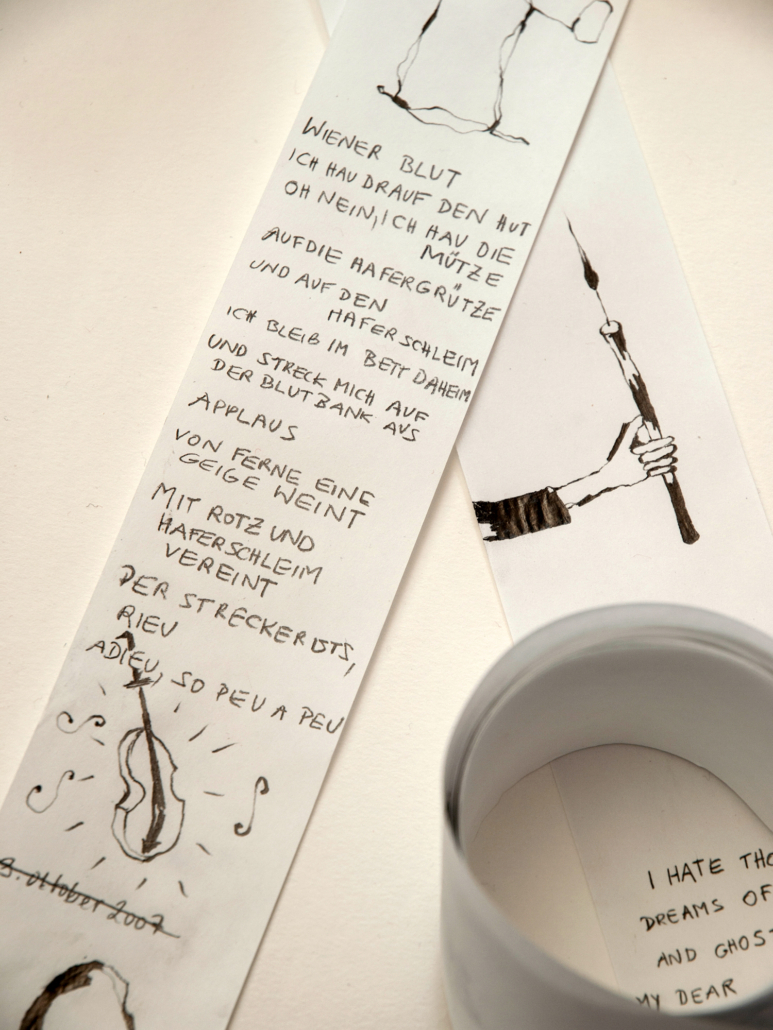 WIENER BLUT
ICH HAU DRAUF DEN HUT
OH NEIN, ICH HAU DIE
MÜTZE
AUF DIE HAFERGRÜTZE
UND AUF DEN
HAFERSCHLEIM
ICH BLEIB IM BETT DAHEIM
UND STRECK MICH AUF
DER BLUTBANK AUS
APPLAUS
VON FERNE EINE
GEIGE WEINT
MIT ROTZ UND
HAFERSCHLEIM
VEREINT
DER STRECKER ISTS,
RIEU
ADIEU, SO PEU A PEU
3. Oktober 2007
I HATE THO
DREAMS OF
AND GHOST
MY DEAR